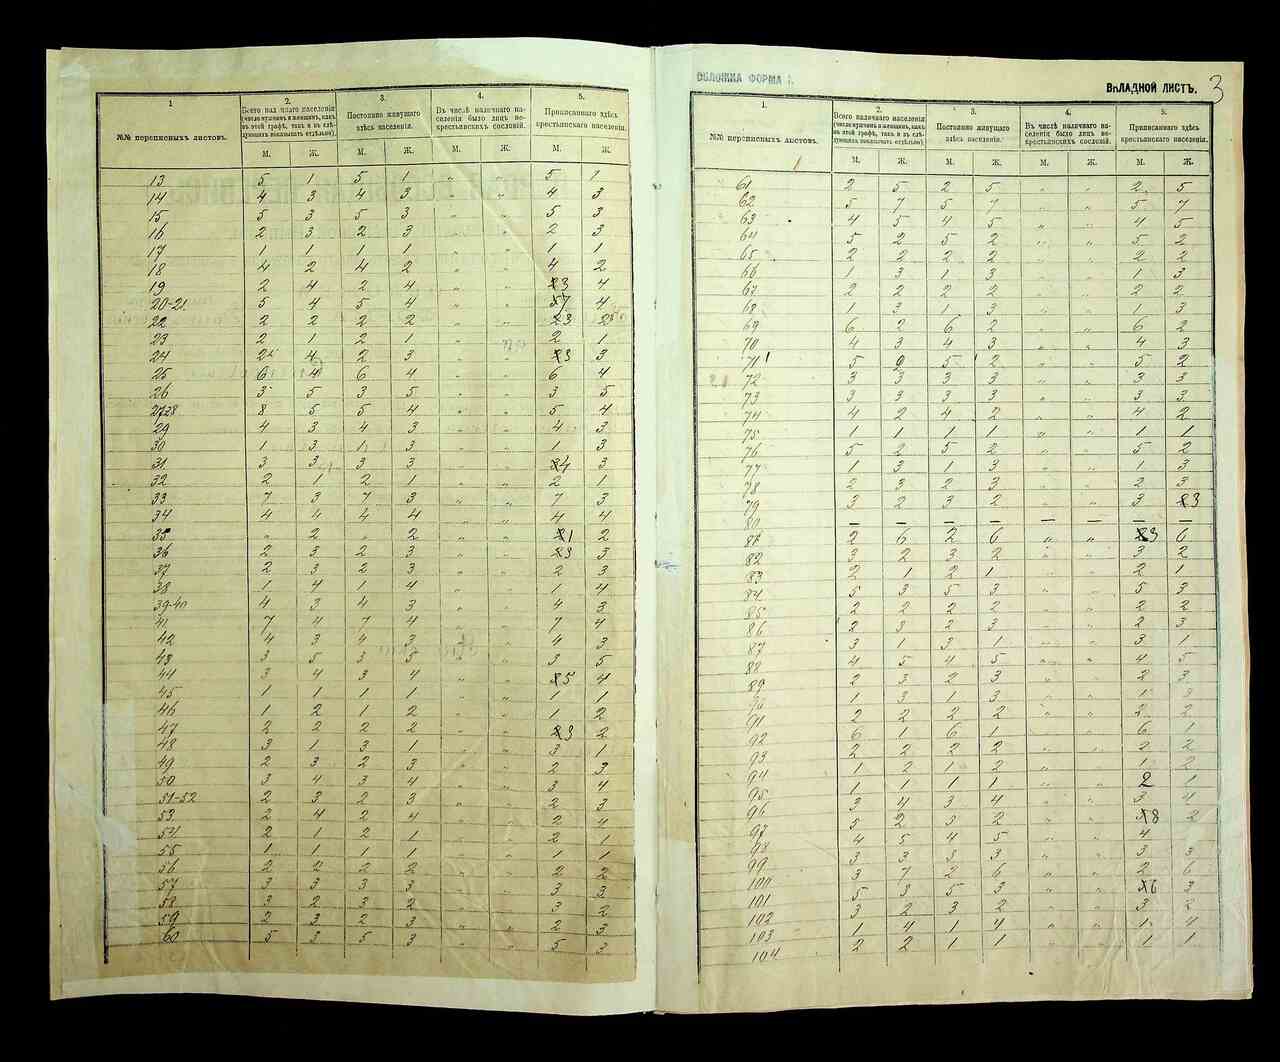 1
2.
3.
4.
5.
№№ переписныхъ листовъ.
Всего наличнаго населенія
(число мужчинъ и женщинъ, какъ
въ этой графѣ, такъ и въ слѣ-
дующихъ показывать отдѣльно).
Постоянно живущаго
здѣсь населенія.
Въ числѣ наличнаго на-
селенія было лицъ не-
крестьянскихъ сословій.
Приписаннаго здѣсь
крестьянскаго населенія.
М. Ж. М. Ж. М. Ж. М. Ж.
13 5 1 5 1 „ „ 5 1
14 4 3 4 3 „ „ 4 3
15 5 3 5 3 „ „ 5 3
16 2 3 2 3 „ „ 2 3
17 1 1 1 1 „ „ 1 1
18 4 2 4 2 „ „ 4 2
19 2 4 2 4 „ „ 3 4
20-21. 5 4 5 4 „ „ 7 4
22 2 2 2 2 „ „ 3 2
23 2 1 2 1 „ „ 2 1
24 2 4 2 3 „ „ 3 3
25 6 4 6 4 „ „ 6 4
26 3 5 3 5 „ „ 3 5
27-28 8 5 5 4 „ „ 5 4
29 4 3 4 3 „ „ 4 3
30 1 3 1 3 „ „ 1 3
31. 3 3 3 3 „ „ 4 3
32 2 1 2 1 „ „ 2 1
33 7 3 7 3 „ „ 7 3
34 4 4 4 4 „ „ 4 4
35 „ 2 „ 2 „ „ 1 2
36 2 3 2 3 „ „ 3 3
37 2 3 2 3 „ „ 2 3
38 1 4 1 4 „ „ 1 4
39-40 4 3 4 3 „ „ 4 3
41 7 4 7 4 „ „ 7 4
42 4 3 4 3 „ „ 4 3
43 3 5 3 5 „ „ 3 5
44 3 4 3 4 „ „ 5 4
45 1 1 1 1 „ „ 1 1
46 1 2 1 2 „ „ 1 2
47 2 2 2 2 „ „ 3 2
48 3 1 3 1 „ „ 3 1
49 2 3 2 3 „ „ 2 3
50 3 4 3 4 „ „ 3 4
51-52 2 3 2 3 „ „ 2 3
53. 2 4 2 4 „ „ 2 4
54 2 1 2 1 „ „ 2 1
55 1 1 1 1 „ „ 1 1
56 2 2 2 2 „ „ 2 2
57 3 3 3 3 „ „ 3 3
58 3 2 3 2 „ „ 3 2
59 2 3 2 3 „ „ 2 3
60 5 3 5 3 „ „ 5 3
ОБЛОЖКА ФОРМА
ВКЛАДНОЙ ЛИСТЪ.
3
1.
2.
3.
4.
5.
№№ переписныхъ листовъ.
Всего наличнаго населенія
(число мужчинъ и женщинъ, какъ
въ этой графѣ, такъ и въ слѣ-
дующихъ показывать отдѣльно).
Постоянно живущаго
здѣсь населенія.
Въ числѣ наличнаго на-
селенія было лицъ не-
крестьянскихъ сословій.
Приписаннаго здѣсь
крестьянскаго населенія.
М. Ж. М. Ж. М. Ж. М. Ж.
61 2 5 2 5 „ „ 2 5
62 5 7 5 7 „ „ 5 7
63 4 5 4 5 „ „ 4 5
64 5 2 5 2 „ „ 5 2
65 2 2 2 2 „ „ 2 2
66 1 3 1 3 „ „ 1 3
67 2 2 2 2 „ „ 2 2
68 1 3 1 3 „ „ 1 3
69 6 2 6 2 „ „ 6 2
70 4 3 4 3 „ „ 4 3
71 5 2 5 2 „ „ 5 2
72 3 3 3 3 „ „ 3 3
73 3 3 3 3 „ „ 3 3
74 4 2 4 2 „ „ 4 2
75 1 1 1 1 „ „ 1 1
76 5 2 5 2 „ „ 5 2
77 1 3 1 3 „ „ 1 3
78 2 3 2 3 „ „ 2 3
79 3 2 3 2 „ „ 3 3
80 — — — — — — — —
81 2 6 2 6 „ „ 3 6
82 3 2 3 2 „ „ 3 2
83 2 1 2 1 „ „ 2 1
84 5 3 5 3 „ „ 5 3
85 2 2 2 2 „ „ 2 2
86 2 3 2 3 „ „ 2 3
87 3 1 3 1 „ „ 3 1
88 4 5 4 5 „ „ 4 5
89 2 3 2 3 „ „ 2 3
90 1 3 1 3 „ „ 1 3
91 2 2 2 2 „ „ 2 2
92 6 1 6 1 „ „ 6 1
93 2 2 2 2 „ „ 2 2
94 1 2 1 2 „ „ 1 2
95 1 1 1 1 „ „ 2 1
96 3 4 3 4 „ „ 3 4
97 5 2 3 2 „ „ 8 2
98 4 5 4 5 „ „ 4
99 3 3 3 3 „ „ 3 3
100 3 7 2 6 „ „ 2 6
101 5 3 5 3 „ „ 6 3
102 3 2 3 2 „ „ 3 2
103 1 4 1 4 „ „ 1 4
104 2 2 1 1 „ „ 1 1